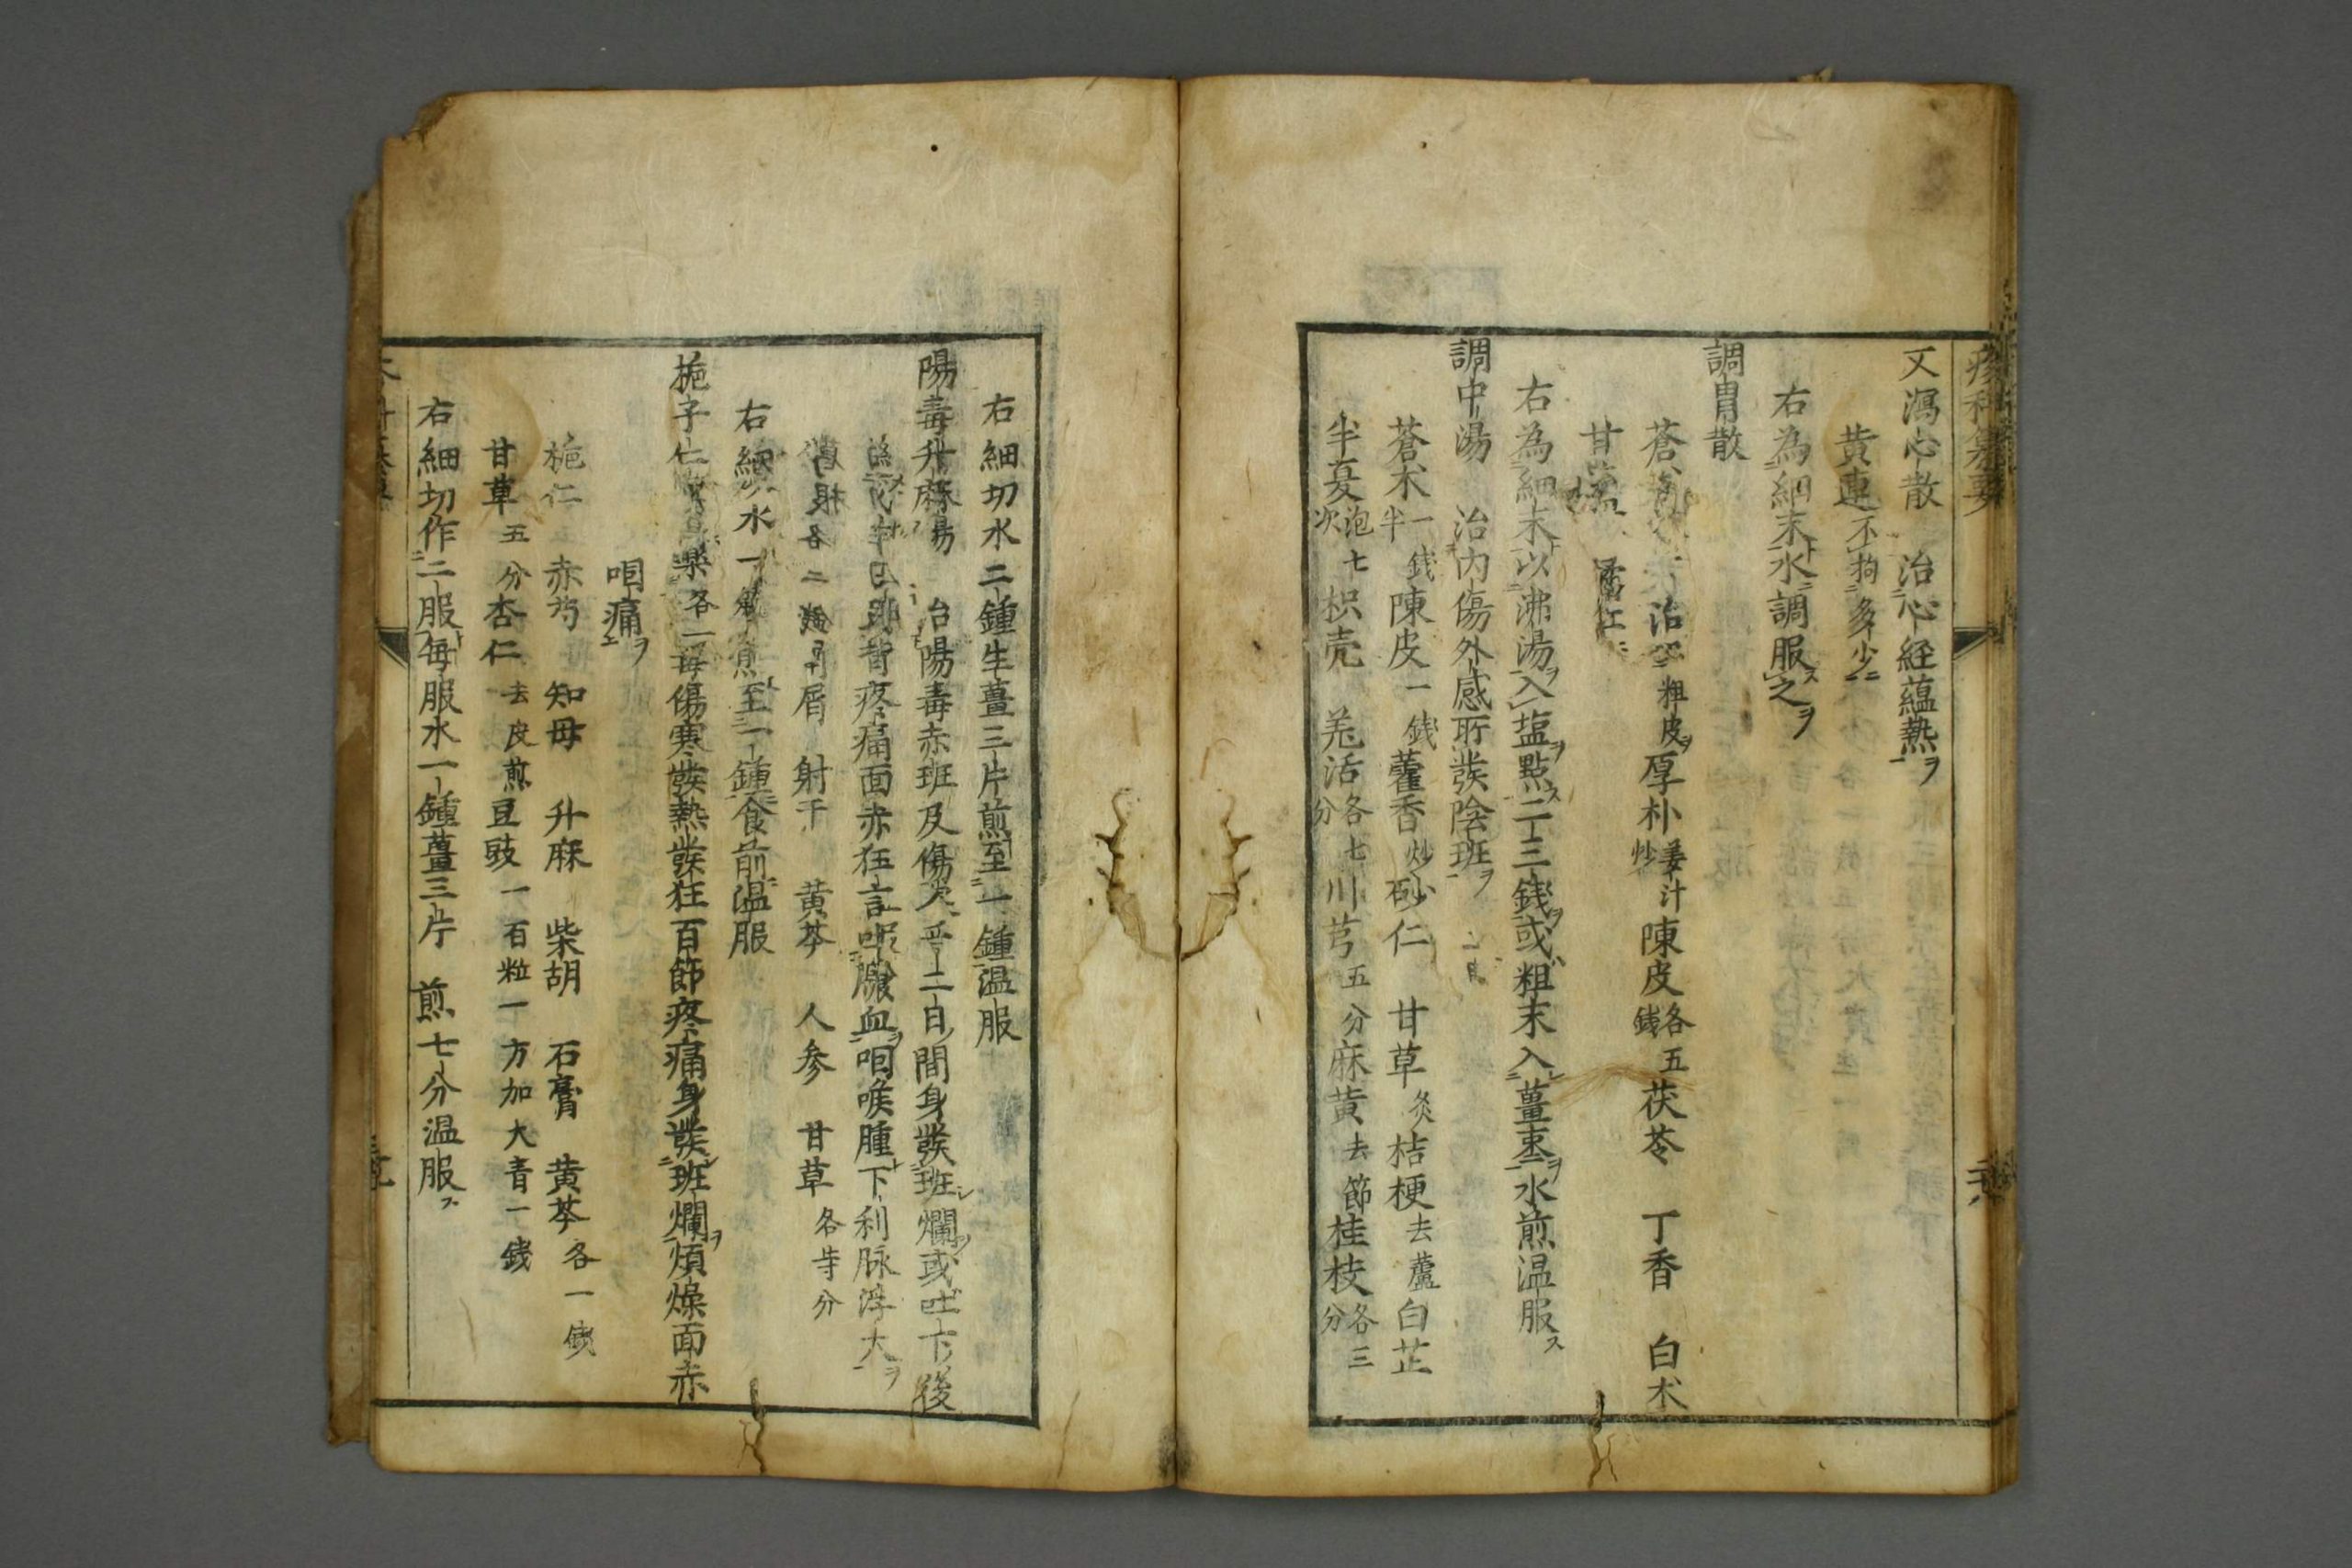 痘科纂要
又瀉心散 治心経蘊熱ヲ
黄連 不拘多少
右為細末水調服之ヲ
調胃散
蒼 治 粗皮 厚朴 姜汁炒 陳皮 各五銭 茯苓 丁香 白朮
甘 藿
右為細末以沸湯入塩點二三銭或粗末入薑棗水煎温服ス
調中湯 治内傷外感所發陰班ヲ
蒼朮 一銭半 陳皮 一銭 藿香 炒 砂仁 甘草 炙 桔梗 去蘆 白芷
半夏 泡七次 枳壳 羗活 各七分 川芎 五分 麻黄 去節 桂枝 各三分
右細切水二鍾生薑三片煎至一鍾温服
陽毒升麻湯 治陽毒赤班及傷 一二日間身發班爛或吐下後
背疼痛面赤狂言 膿血咽喉腫下利脉浮大ヲ
根 各二 屑 射干 黄芩 人参 甘草 各等分
右細 水一 煎至一鍾食前温服
梔子仁 各一 傷寒發熱發狂百節疼痛身發班爛煩燥面赤
咽痛ヲ
梔仁 赤芍 知母 升麻 柴胡 石膏 黄芩 各一銭
甘草 五分 杏仁 去皮煎 豆豉 一百粒一方加大青一銭
右細切作二服毎服水一鍾薑三片 煎七分温服ス